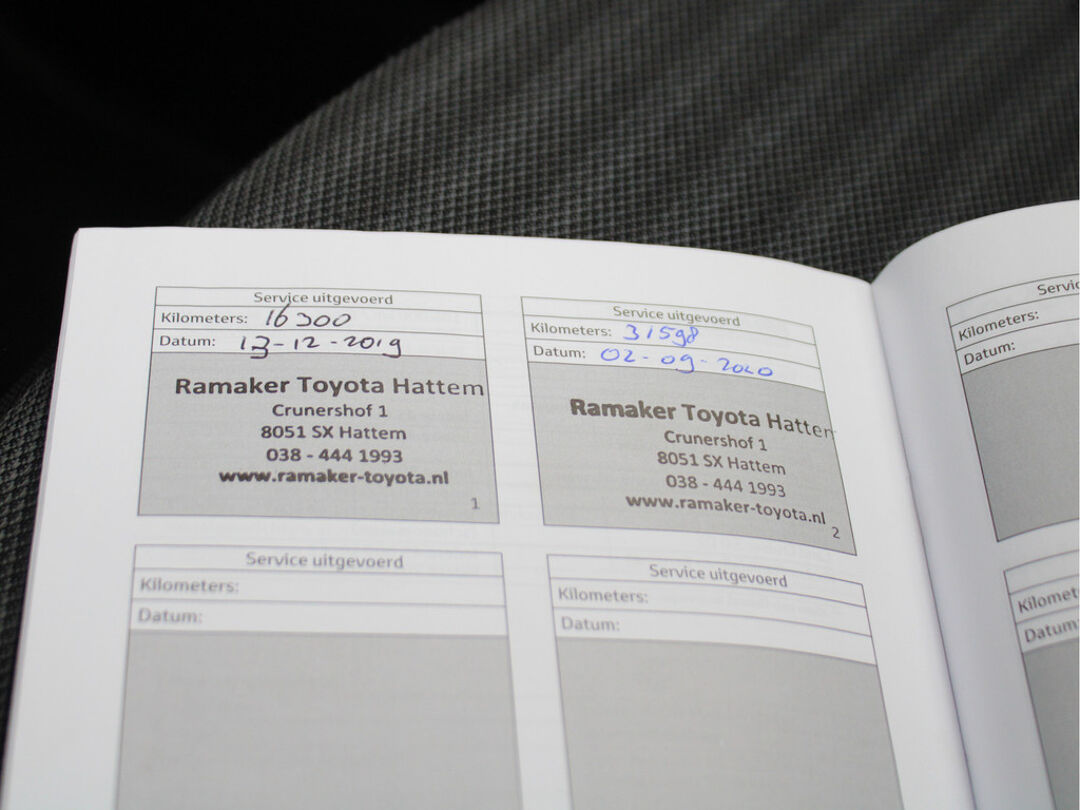 Service uitgevoerd
Kilometers: 16300
Datum: 13-12-2019
Ramaker Toyota Hattem
Crunershof 1
8051 SX Hattem
038 - 444 1993
www.ramaker-toyota.nl
1
Service uitgevoerd
Kilometers: 31598
Datum: 02-09-2020
Ramaker Toyota Hattem
Crunershof 1
8051 SX Hattem
038 - 444 1993
www.ramaker-toyota.nl
2
Service uitgevoerd
Kilometers:
Datum:
Service uitgevoerd
Kilometers:
Datum:
Kilometers:
Datum: